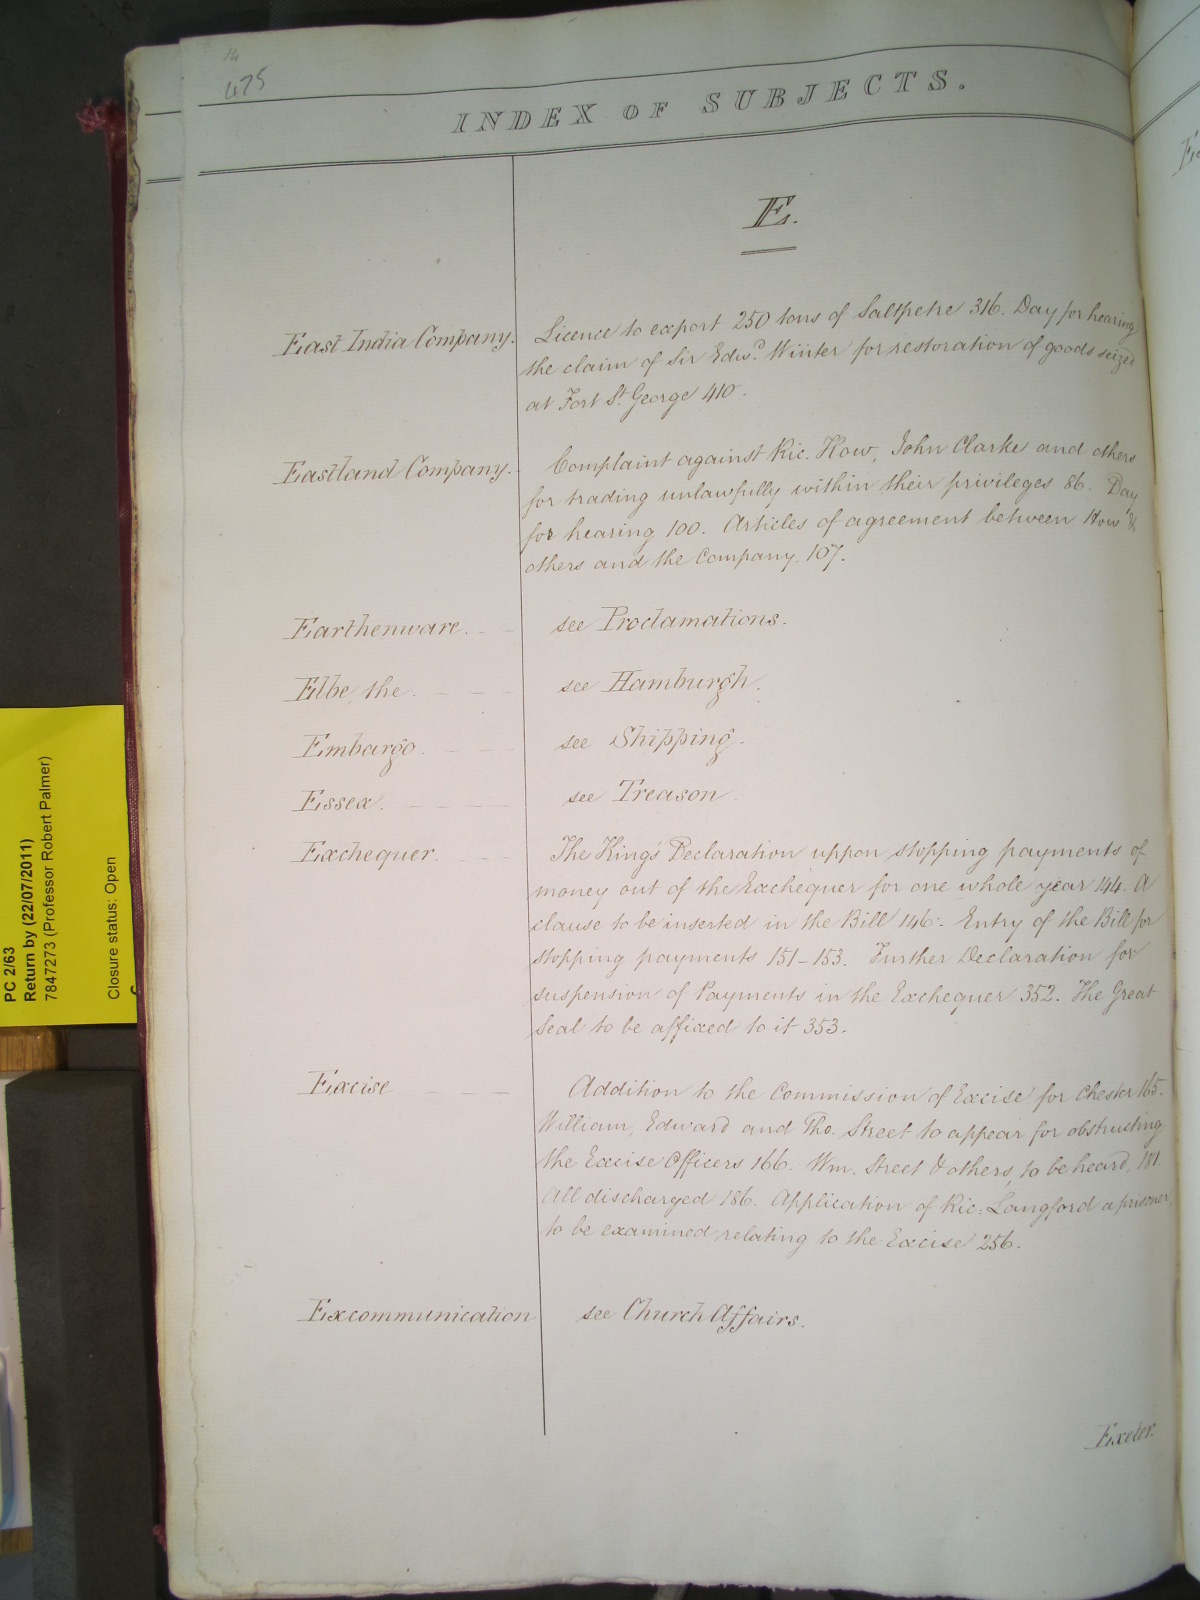 475
INDEX OF SUBJECTS.
E.
East India Company. Licence to export 250 tons of Saltpetre 316. Day for hearing
the claim of Sir Edwd. Winter for restoration of goods seized
at Fort St. George 410.
Eastland Company. Complaint against Ric. How, John Clarke and others
for trading unlawfully within their privileges 86. Day
for hearing 100. Articles of agreement between How &
others and the Company. 107.
Earthenware. see Proclamations.
Elbe, the. see Hamburgh.
Embargo. see Shipping.
Essex. see Treason.
Exchequer. The King's Declaration uppon stopping payments of
money out of the Exchequer for one whole year 144. A
clause to be inserted in the Bill 146. Entry of the Bill for
stopping payments 151-153. Further Declaration for
suspension of Payments in the Exchequer 352. The Great
Seal to be affixed to it 353.
Excise Addition to the Commission of Excise for Chester 165.
William, Edward and Tho. Street to appear for obstructing
the Excise Officers 166. Wm. Street & others, to be heard. 181.
All discharged 186. Application of Ric: Langford a prisoner,
to be examined relating to the Excise 256.
Excommunication see Church Affairs.
Exeter.
PC 2/63
Return by (22/07/2011)
7847273 (Professor Robert Palmer)
Closure status: Open